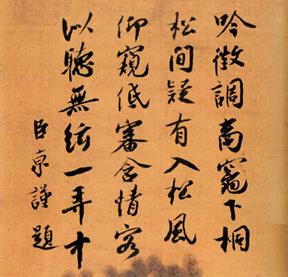 吟徵調商竈下桐
松間疑有入松風
仰窺低審含情客
以聽無弦一弄中
臣京謹題